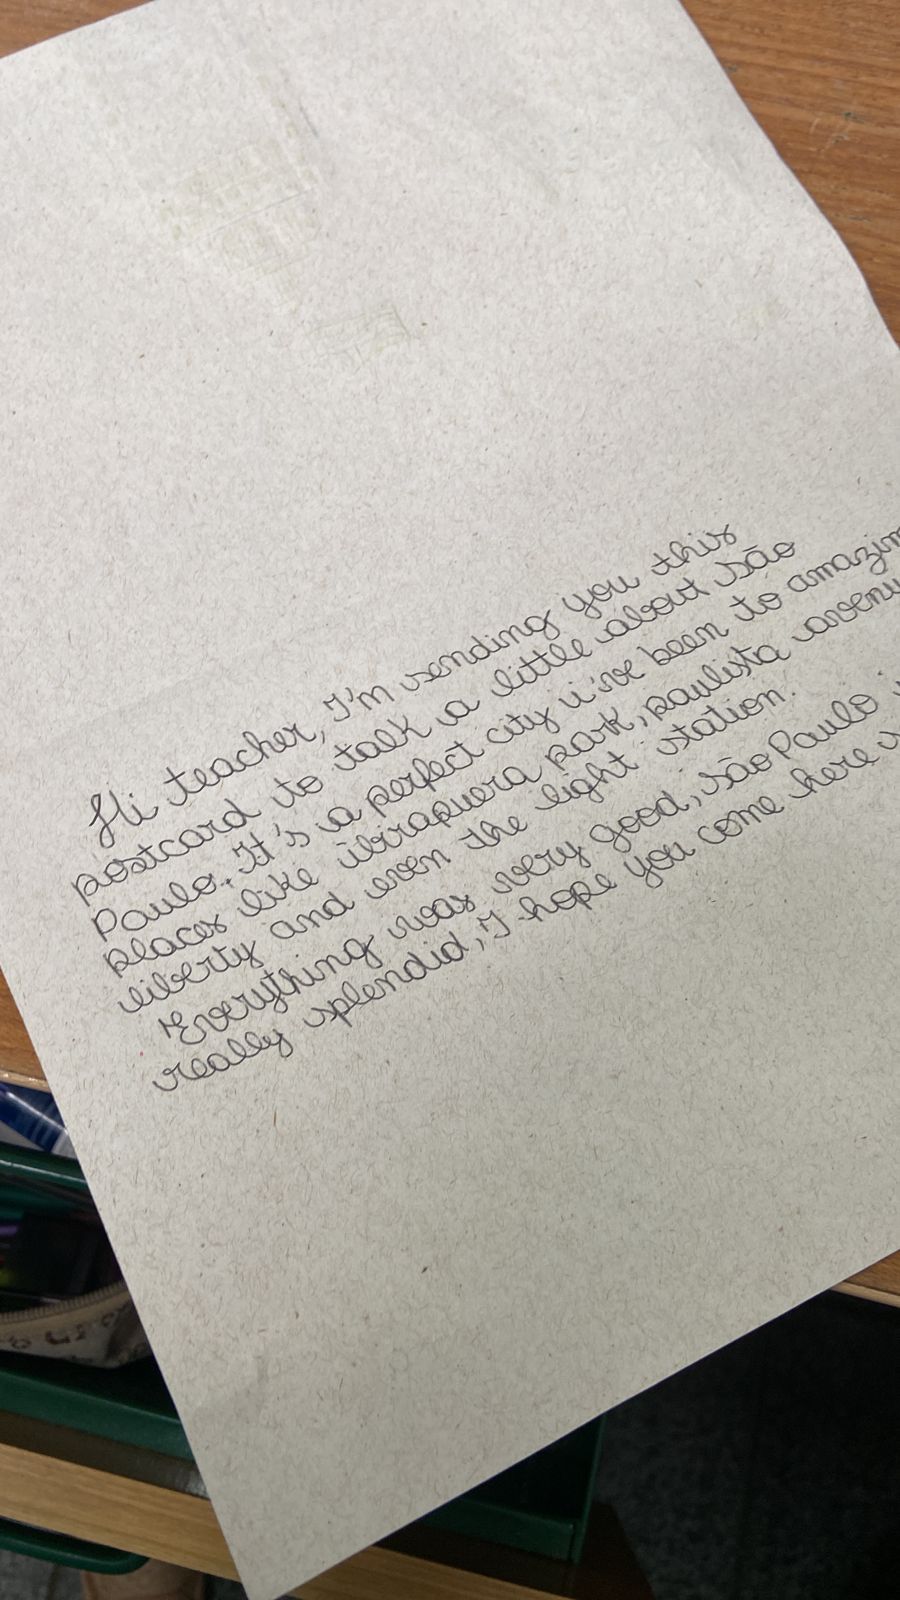 Hi teacher, I'm sending you this
postcard to talk a little about São
Paulo. It's a perfect city i've been to amazin
places like ibirapuera park, paulista avenu
liberty and even the light station.
Everything was very good, São Paulo i
really splendid, I hope you come here s